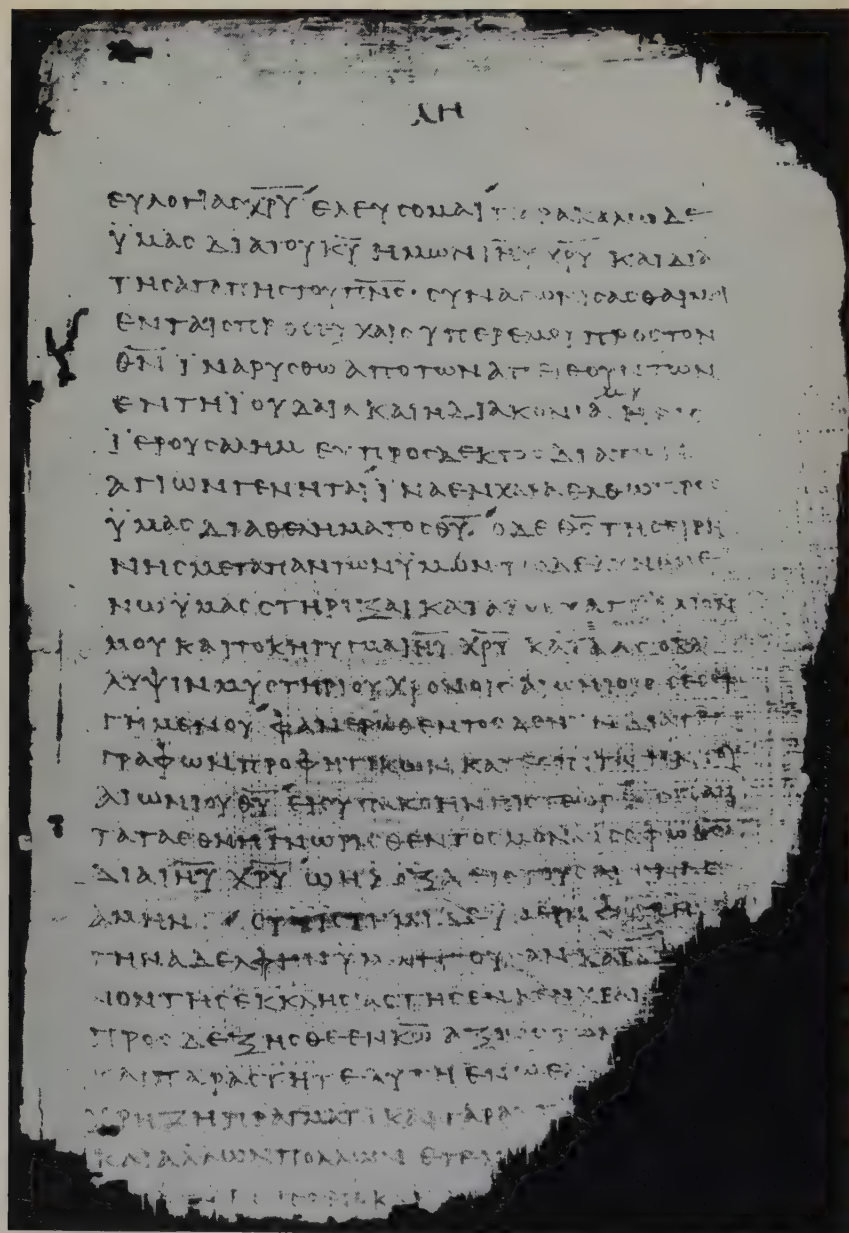 ΛΗ
ΕΥΛΟΓΙΑϹ Χ̅Ρ̅Υ̅ ΕΛΕΥϹΟΜΑΙ ΠΑΡΑΚΑΛΩ ΔΕ
ΫΜΑϹ ΔΙΑ ΤΟΥ Κ̅Υ̅ ΗΜΩΝ Ι̅Η̅Υ̅ Χ̅Ρ̅Υ̅ ΚΑΙ ΔΙΑ
ΤΗϹ ΑΓΑΠΗϹ ΤΟΥ Π̅Ν̅Ϲ̅ · ϹΥΝΑΓΩΝΙϹΑϹΘΑΙ ΜΟΙ
ΕΝ ΤΑΙϹ ΠΡΟϹΕΥΧΑΙϹ ΥΠΕΡ ΕΜΟΥ ΠΡΟϹ ΤΟΝ
Θ̅Ν̅ ΪΝΑ ΡΥϹΘΩ ΑΠΟ ΤΩΝ ΑΠΕΙΘΟΥΝΤΩΝ
ΕΝ ΤΗ ΪΟΥΔΑΙΑ ΚΑΙ Η ΔΙΑΚΟΝΙΑ ΜΟΥ Η ΕΙϹ
ΪΕΡΟΥϹΑΛΗΜ ΕΥΠΡΟϹΔΕΚΤΟϹ ΔΙΑ ΤΩΝ
ΑΓΙΩΝ ΓΕΝΗΤΑΙ ΪΝΑ ΕΝ ΧΑΡΑ ΕΛΘΩ ΠΡΟϹ
ΫΜΑϹ ΔΙΑ ΘΕΛΗΜΑΤΟϹ Θ̅Υ̅ Ο ΔΕ Θ̅Ϲ̅ ΤΗϹ ΕΙΡΗ
ΝΗϹ ΜΕΤΑ ΠΑΝΤΩΝ ΫΜΩΝ ΤΩ ΔΕ ΔΥΝΑΜΕ
ΝΩ ΫΜΑϹ ϹΤΗΡΙΞΑΙ ΚΑΤΑ ΤΟ ΕΥΑΓΓΕΛΙΟΝ
ΜΟΥ ΚΑΙ ΤΟ ΚΗΡΥΓΜΑ Ι̅Η̅Υ̅ Χ̅Ρ̅Υ̅ ΚΑΤΑ ΑΠΟΚΑ
ΛΥΨΙΝ ΜΥϹΤΗΡΙΟΥ ΧΡΟΝΟΙϹ ΑΙΩΝΙΟΙϹ ϹΕϹΕΙ
ΓΗΜΕΝΟΥ ΦΑΝΕΡΩΘΕΝΤΟϹ ΔΕ ΝΥΝ ΔΙΑ ΤΕ
ΓΡΑΦΩΝ ΠΡΟΦΗΤΙΚΩΝ ΚΑΤ ΕΠΙΤΑΓΗΝ ΤΟΥ
ΑΙΩΝΙΟΥ Θ̅Υ̅ ΕΙϹ ΥΠΑΚΟΗΝ ΠΙϹΤΕΩϹ ΕΙϹ ΠΑΝ
ΤΑ ΤΑ ΕΘΝΗ ΓΝΩΡΙϹΘΕΝΤΟϹ ΜΟΝΩ ϹΟΦΩ Θ̅Ω̅
ΔΙΑ Ι̅Η̅Υ̅ Χ̅Ρ̅Υ̅ Ω Η ΔΟΞΑ ΕΙϹ ΤΟΥϹ ΑΙΩΝΑϹ
ΑΜΗΝ ϹΥΝΙϹΤΗΜΙ ΔΕ ΥΜΕΙΝ ΦΟΙΒΗΝ
ΤΗΝ ΑΔΕΛΦΗΝ ΥΜΩΝ ΟΥϹΑΝ ΚΑΙ ΔΙ
ΝΟΝ ΤΗϹ ΕΚΚΛΗϹΙΑϹ ΤΗϹ ΕΝ ΚΕΝΧΡΕΑΙ
ΠΡΟϹΔΕΞΗϹΘΕ ΕΝ Κ̅Ω̅ ΑΞΙΩϹ ΤΩΝ
ΚΑΙ ΠΑΡΑϹΤΗΤΕ ΑΥΤΗ ΕΝ Ω ΕΑ
ΧΡΗΖΗ ΠΡΑΓΜΑΤΙ ΚΑΙ ΓΑΡ Α
ΚΑΙ ΑΛΛΩΝ ΠΟΛΛΩΝ ΕΓΕ